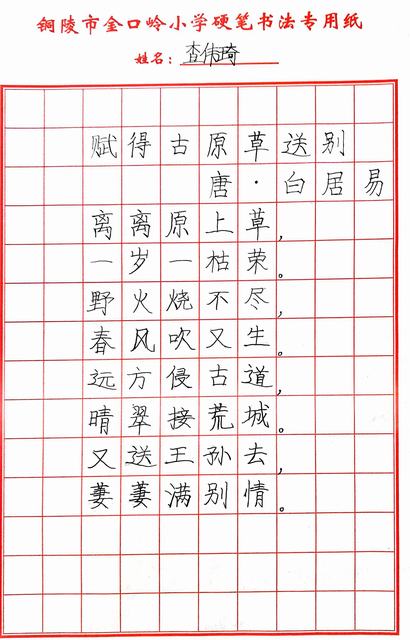 铜陵市金口岭小学硬笔书法专用纸
姓名：查伟琦
赋得古原草送别
唐·白居易
离离原上草，
一岁一枯荣。
野火烧不尽，
春风吹又生。
远方侵古道，
晴翠接荒城。
又送王孙去，
萋萋满别情。